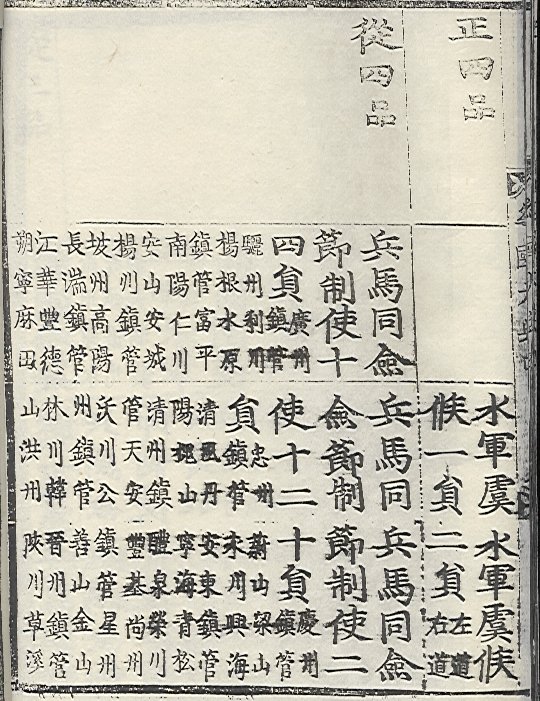 正四品
水軍虞
候一員
水軍虞候
二員
左道
右道
從四品
兵馬同僉
節制使十
四員
廣州
鎭管
驪州利川
楊根水原
鎭管富平
南陽仁川
安山安城
楊州鎭管
坡州高陽
長湍鎭管
江華豐德
朔寧麻田
兵馬同
僉節制
使十二
員
忠州
鎭管
清風丹
陽槐山
清州鎭
管天安
沃川公
州鎭管
林川韓
山洪州
兵馬同僉
節制使二
十員
慶州
鎭管
蔚山梁山
永川興海
安東鎭管
寧海青松
醴泉榮川
豐基尚州
鎭管星州
善山金山
晉州鎭管
陜川草溪